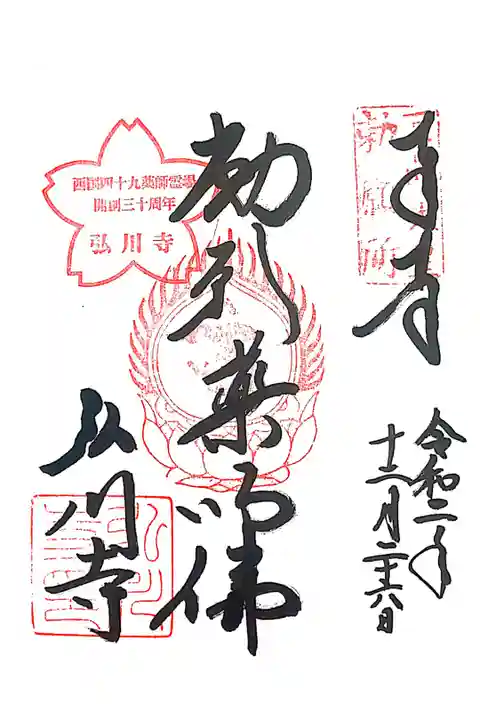 奉拝
勅願所
令和二年
十二月二十六日
勅願薬師佛
西国四十九薬師霊場
開創三十周年
弘川寺
弘川寺